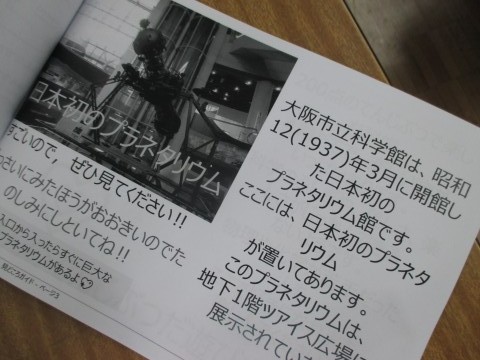 日本初のプラネタリウム
すごいので，ぜひ見てください!!
さいにみたほうがおおきいのでた
のしみにしといてね!!
入口から入ったらすぐに巨大な
プラネタリウムがあるよ♡
見どころガイド・ページ3
大阪市立科学館は、昭和
12(1937)年3月に開館し
た日本初の
プラネタリウム館です。
ここには、日本初のプラネタ
リウム
が置いてあります。
このプラネタリウムは、
地下1階ツアイス広場に
展示されていま